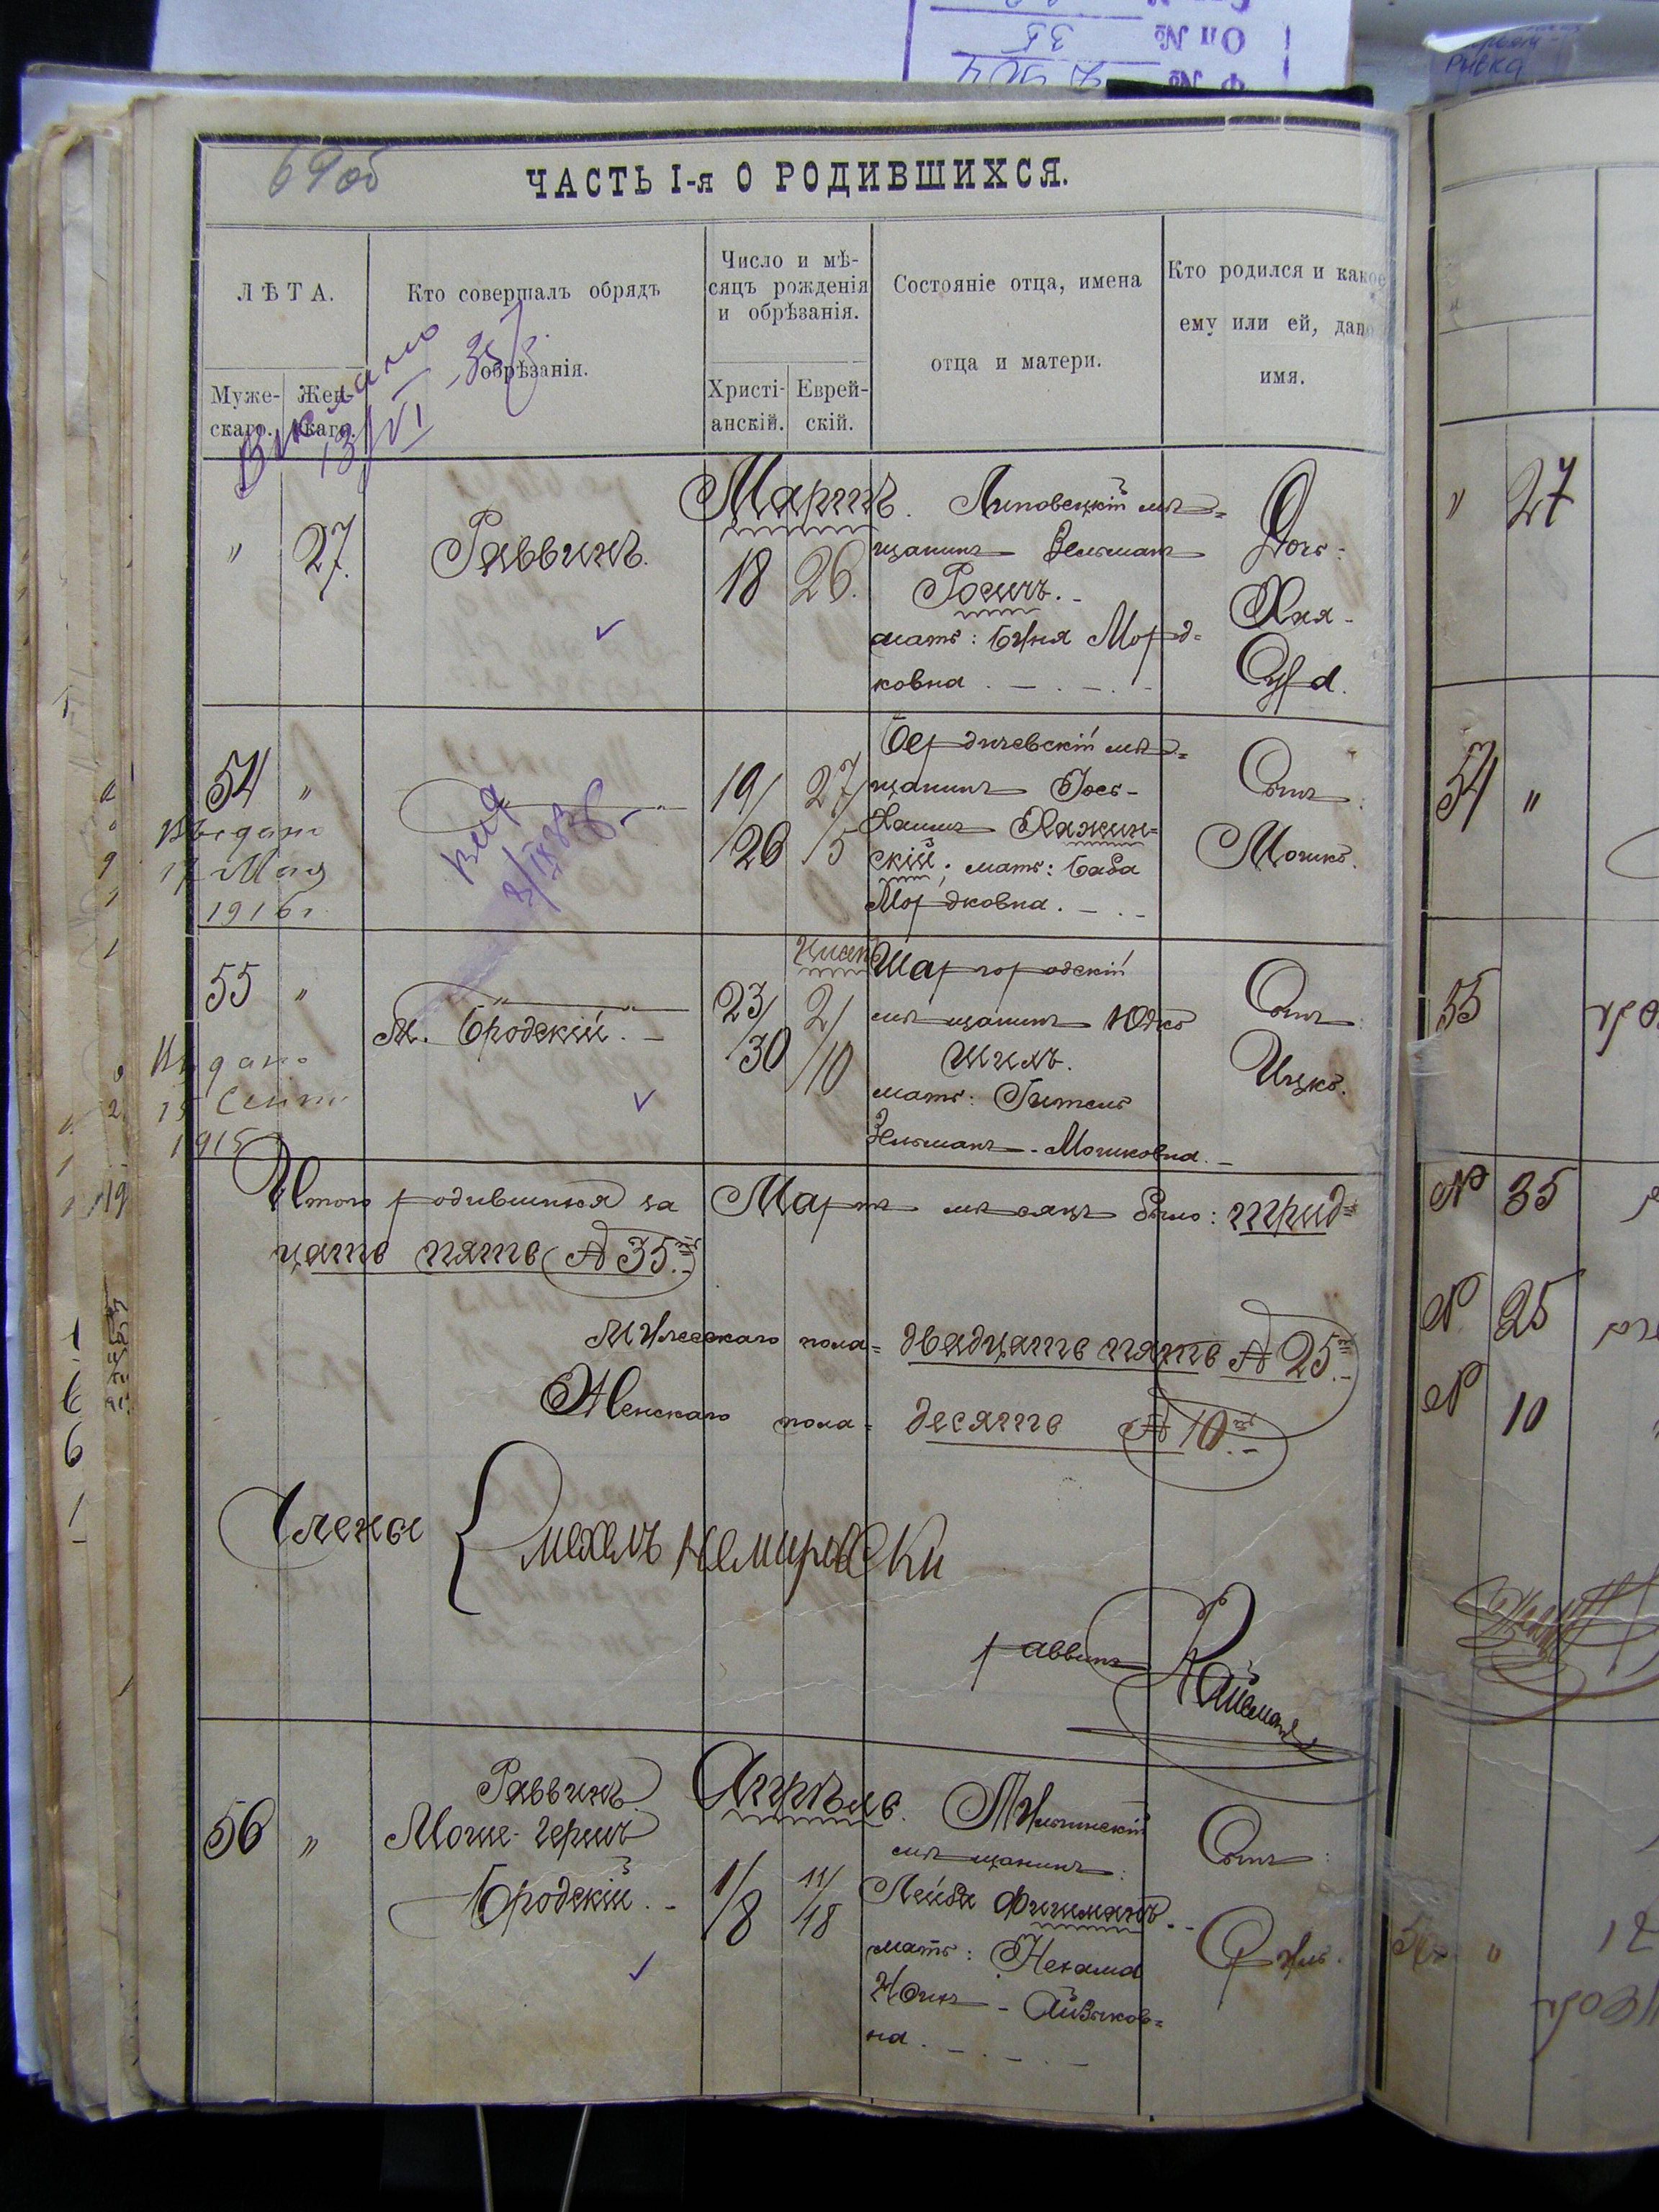 69 об
ЧАСТЬ I-я О РОДИВШИХСЯ.
ЛѢТА.
Муже-
скаго.
Жен-
скаго.
Кто совершалъ обрядъ
обрѣзанія.
Число и мѣ-
сяцъ рожденія
и обрѣзанія.
Христі-
анскій.
Еврей-
скій.
Состояніе отца, имена
отца и матери.
Кто родился и какое
ему или ей, дано
имя.
Выдано
13/VI
Мартъ.
" 27.
Раввинъ.
18 26.
Липовецкій мѣ=
щанинъ Зельманъ
Росичъ.-
мать: Буня Морд=
ковна
Дочь:
Хая-
Сура.
54 "
Выдано
17 Мая
1916 г.
19/26 27/5
Бердичевскій мѣ=
щанинъ Іось-
Хаимъ Хажин=
скій; мать: Баба
Мордковна.
Сынъ:
Мошко.
55 "
Выдано
15 Сент.
1915
М. Бродскій.-
23/30 2/10
Шаргородскій
мѣщанинъ Юдко
Шилъ.
мать: Гитель
Зельманъ-Мошковна.-
Сынъ:
Ицко.
Итого родившихся за Мартъ мѣсяцъ было: трид=
цать пять (№ 35.-)
Мужескаго пола= двадцать пять № 25.-
Женскаго пола= десять № 10.-
Члены
Мехелъ Немировски
раввинъ
Апрѣль.
56 "
Раввинъ
Мошe-Гершъ
Бродскій.-
1/8 11/18
Тульчинскій
мѣщанинъ:
Лейба Фишманъ.-
мать: Нехама
Айзиков=
на.
Сынъ:
Сруль.
" 27
54 "
55
№ 35
№ 25
№ 10
Оп № 35
Ф №